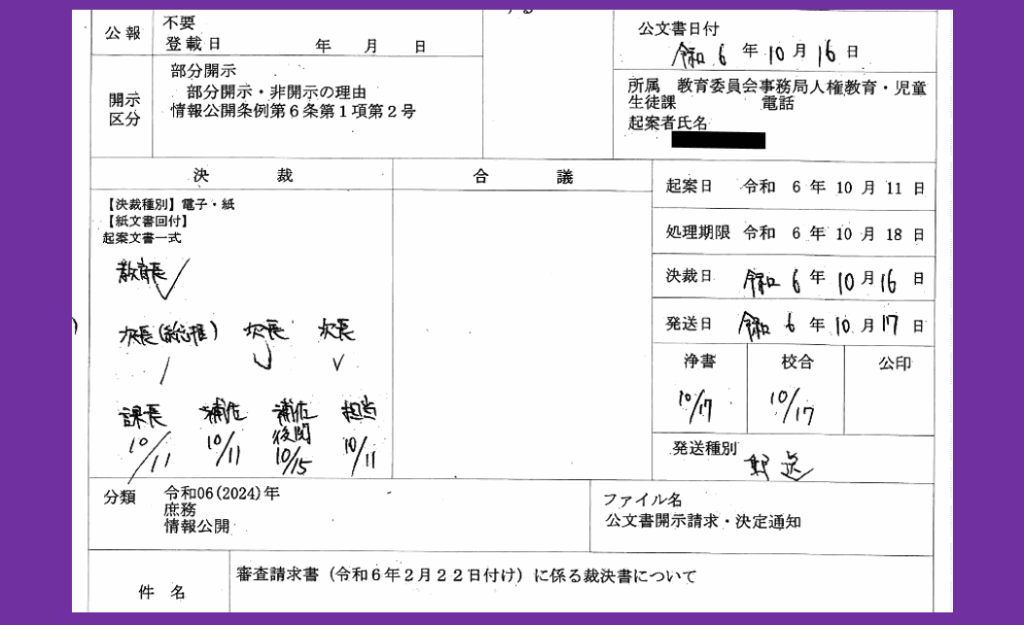 公報
不要
登載日　年　月　日
公文書日付
令和 6 年 10 月 16 日
開示区分
部分開示
部分開示・非開示の理由
情報公開条例第６条第１項第２号
所属　教育委員会事務局人権教育・児童
生徒課　電話
起案者氏名
決　裁
合　議
【決裁種別】電子・紙
【紙文書回付】
起案文書一式
教育長
次長(総推)　次長　次長
課長　補佐　補佐　担当
後閲
10/11　10/11　10/15　10/11
起案日　令和　6 年 10 月 11 日
処理期限　令和　6 年 10 月 18 日
決裁日　令和 6 年 10 月 16 日
発送日　令和 6 年 10 月 17 日
浄書　校合　公印
10/17　10/17
発送種別
郵送
分類
令和06(2024)年
庶務
情報公開
ファイル名
公文書開示請求・決定通知
件　名
審査請求書（令和６年２月２２日付け）に係る裁決書について